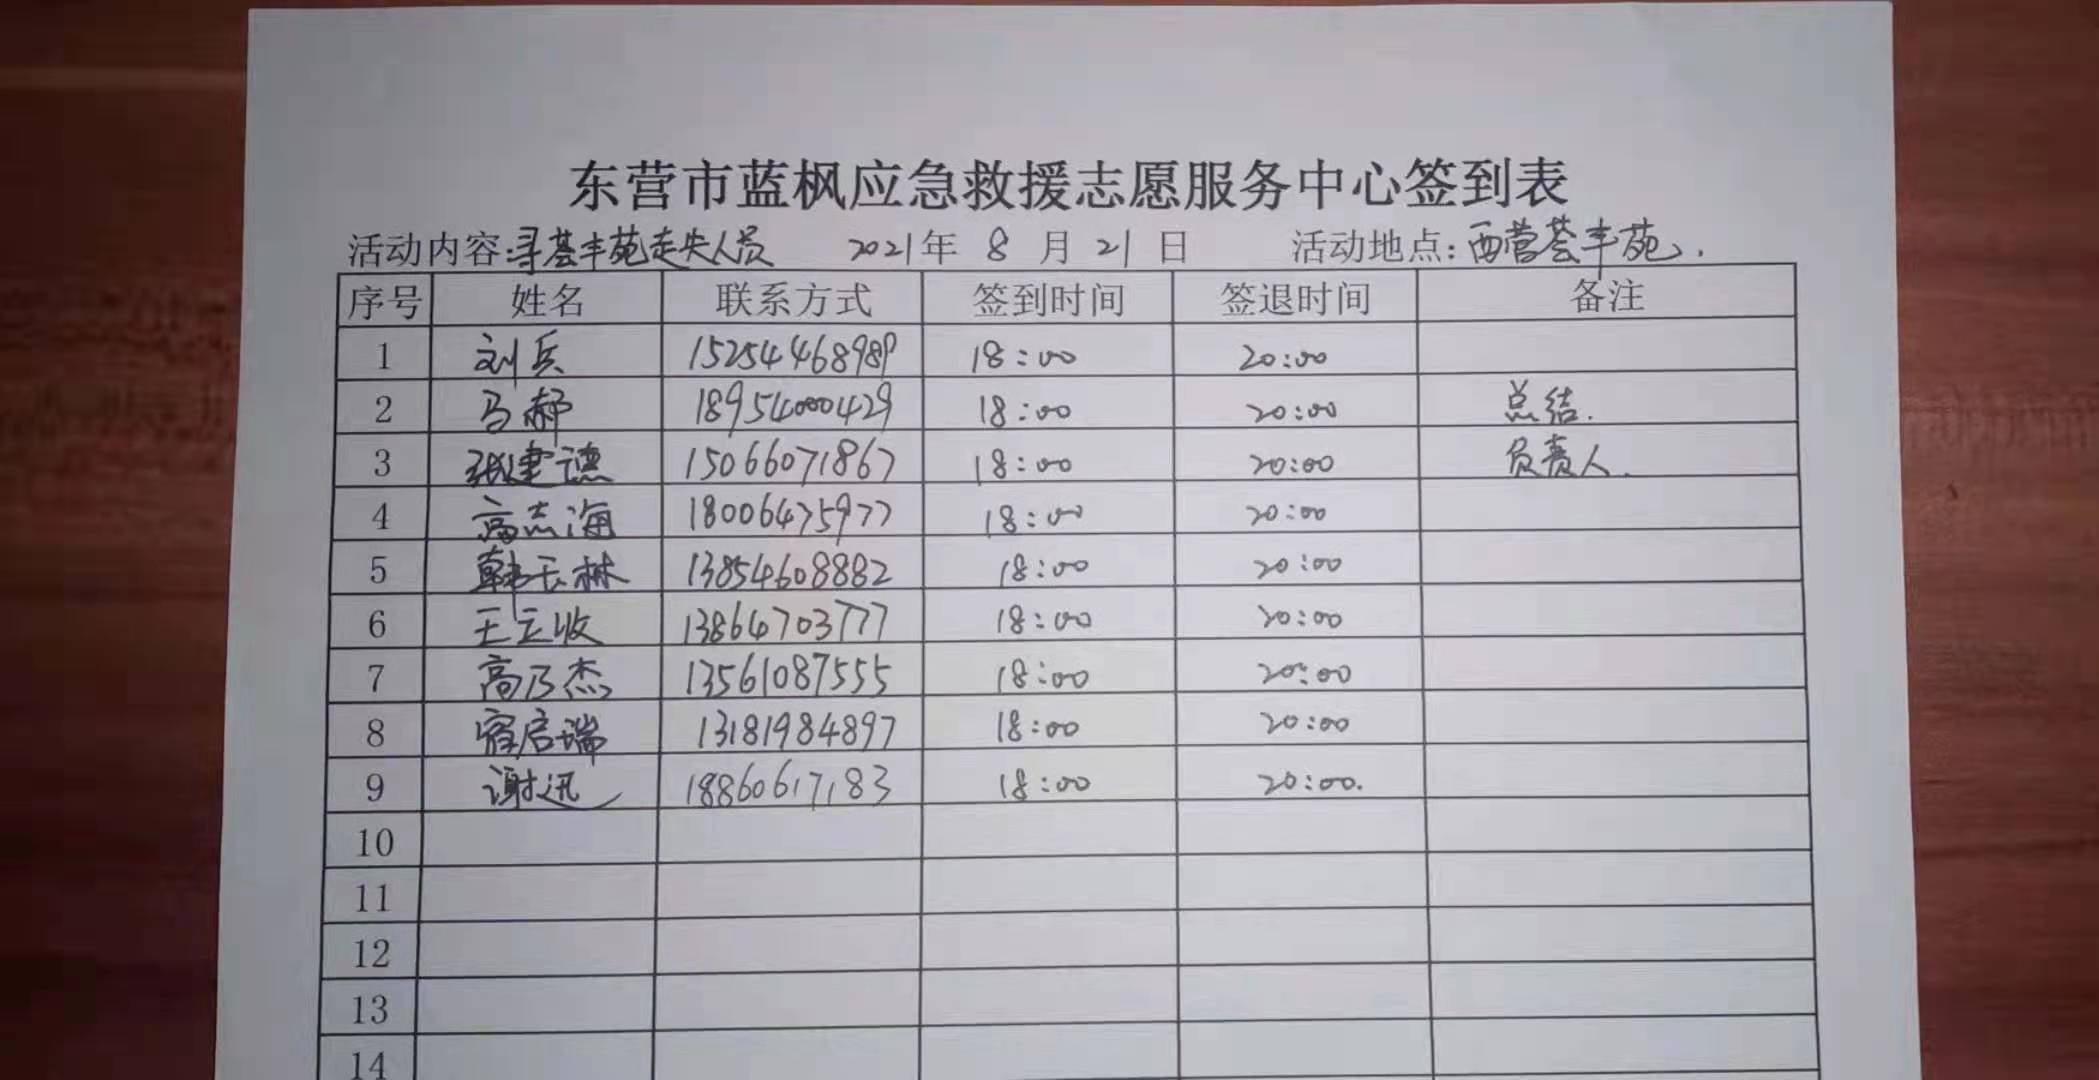 东营市蓝枫应急救援志愿服务中心签到表
活动内容:寻荟丰苑走失人员 2021年 8 月 21 日 活动地点:西营荟丰苑.
序号 姓名 联系方式 签到时间 签退时间 备注
1 刘兵 15254468989 18:00 20:00
2 马郝 18954000429 18:00 20:00 总结.
3 张建德 15066071867 18:00 20:00 负责人.
4 高志海 18006475977 18:00 20:00
5 韩玉林 13854608882 18:00 20:00
6 王立收 13864703777 18:00 20:00
7 高乃杰 13561087555 18:00 20:00
8 启瑞 13181984897 18:00 20:00
9 谢迅 18860617183 18:00 20:00.
10
11
12
13
14